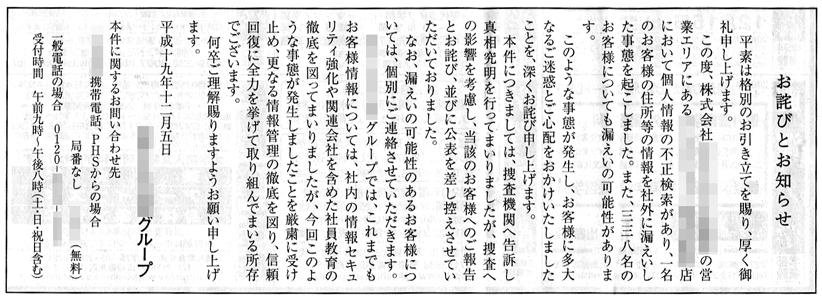 お詫びとお知らせ
平素は格別のお引き立てを賜り、厚く御
礼申し上げます。
この度、株式会社 の営
業エリアにある 店
において個人情報の不正検索があり、一名
のお客様の住所等の情報を社外に漏えいし
た事態を起こしました。また、三三八名の
お客様についても漏えいの可能性がありま
す。
このような事態が発生し、お客様に多大
なるご迷惑とご心配をおかけいたしました
ことを、深くお詫び申し上げます。
本件につきましては、捜査機関へ告訴し
真相究明を行ってまいりましたが、捜査へ
の影響を考慮し、当該のお客様へのご報告
とお詫び、並びに公表を差し控えさせてい
ただいておりました。
なお、漏えいの可能性のあるお客様につ
いては、個別にご連絡させていただきます。
グループでは、これまでも
お客様情報については、社内の情報セキュ
リティ強化や関連会社を含めた社員教育の
徹底を図ってまいりましたが、今回このよ
うな事態が発生しましたことを厳粛に受け
止め、更なる情報管理の徹底を図り、信頼
回復に全力を挙げて取り組んでまいる所存
でございます。
何卒ご理解賜りますようお願い申し上げ
ます。
平成十九年十二月五日
グループ
本件に関するお問い合わせ先
携帯電話、PHSからの場合
局番なし (無料)
一般電話の場合 0120- -
受付時間 午前九時～午後八時(土・日・祝日含む)